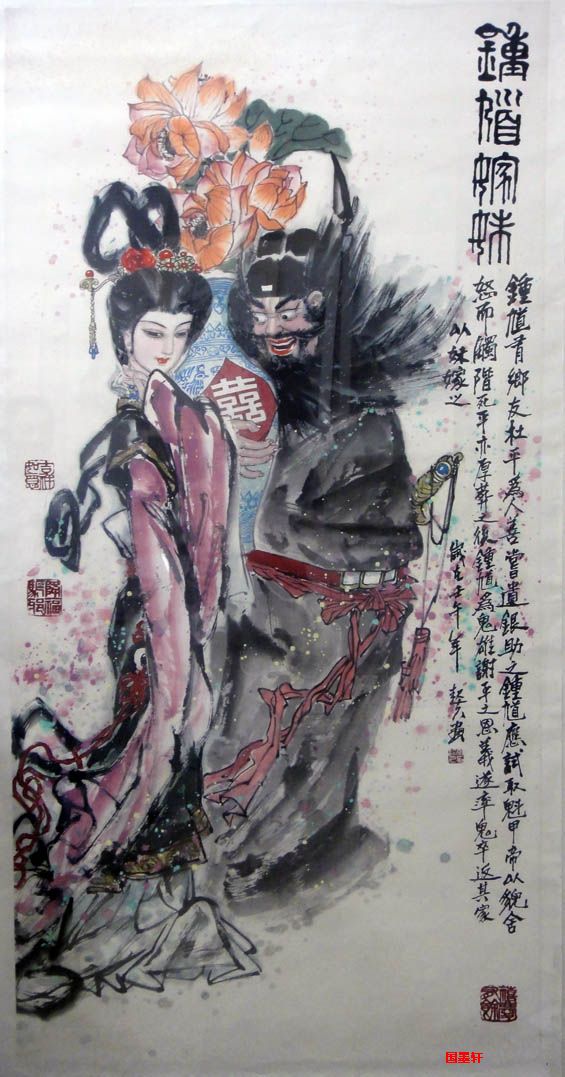 鍾馗嫁妹
鍾馗有鄉友杜平為人善嘗遺銀助之鍾馗應試取魁甲帝以貌舍
怒而觸階死平亦厚葬之後鍾馗為鬼雄謝平之恩義遂率鬼卒返其家
以妹嫁之
歲在壬午年
囍
国墨轩